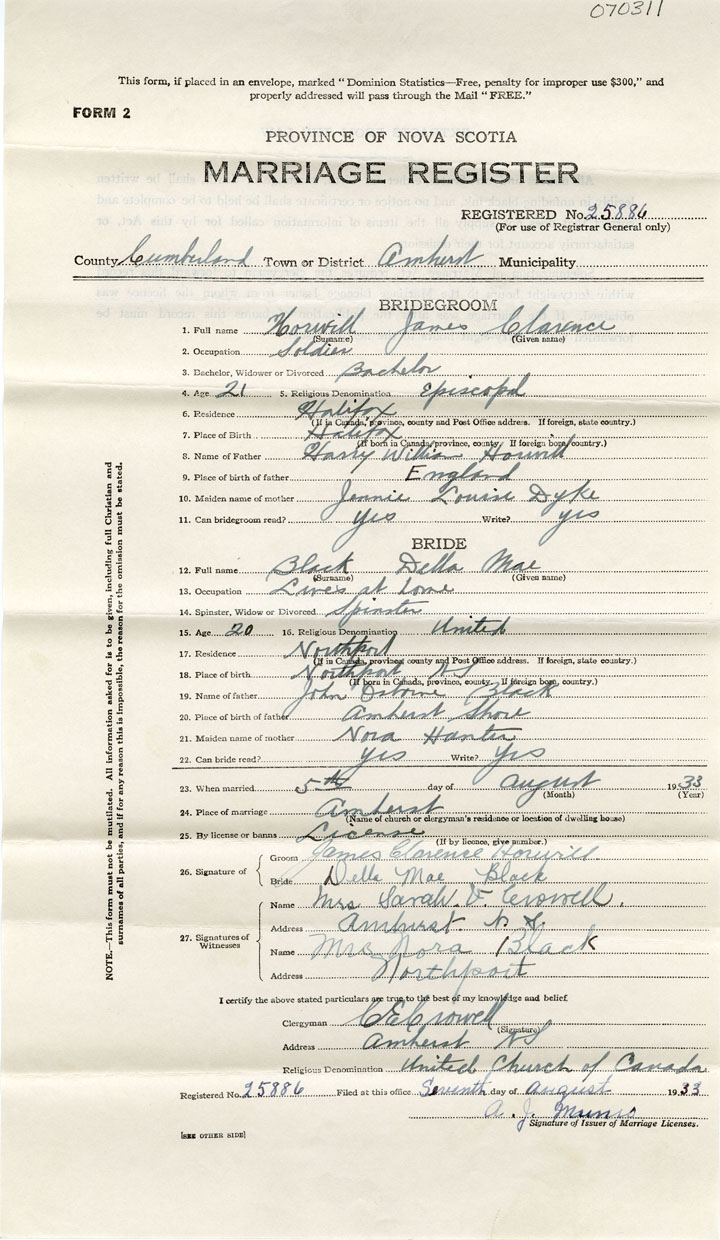 070311
This form, if placed in an envelope, marked "Dominion Statistics—Free, penalty for improper use $300," and
properly addressed will pass through the Mail "FREE."
FORM 2
PROVINCE OF NOVA SCOTIA
MARRIAGE REGISTER
REGISTERED No. 25886
(For use of Registrar General only)
County Cumberland Town or District Amherst Municipality
BRIDEGROOM
1. Full name Horwill James Clarence
(Surname) (Given name)
2. Occupation Soldier
3. Bachelor, Widower or Divorced Bachelor
4. Age 21 5. Religious Denomination Episcopal
6. Residence Halifax
(If in Canada, province, county and Post Office address. If foreign, state country.)
7. Place of Birth Halifax
(If born in Canada, province, county If foreign born, country.)
8. Name of Father Harry William Horwill
9. Place of birth of father England
10. Maiden name of mother Jennie Louise Dyke
11. Can bridegroom read? yes Write? yes
BRIDE
12. Full name Black Della Mae
(Surname) (Given name)
13. Occupation Lives at home
14. Spinster, Widow or Divorced Spinster
15. Age 20 16. Religious Denomination United
17. Residence Northport
(If in Canada, province, county and Post Office address. If foreign, state country.)
18. Place of birth Northport NS
(If born in Canada, province, county. If foreign born, country.)
19. Name of father John Osborne Black
20. Place of birth of father Amherst Shore
21. Maiden name of mother Nora Hunter
22. Can bride read? yes Write? yes
23. When married 5th day of August 1933
(Month) (Year)
24. Place of marriage Amherst
(Name of church or clergyman's residence or location of dwelling house)
25. By license or banns License
(If by licence, give number.)
26. Signature of
Groom James Clarence Horwill
Bride Della Mae Black
27. Signatures of Witnesses
Name Mrs Sarah F. Crowell.
Address Amhurst. N.S.
Name Mrs Nora Black
Address Northport
I certify the above stated particulars are true to the best of my knowledge and belief.
Clergyman CECrowell
(Signature)
Address Amherst NS
Religious Denomination United Church of Canada
Registered No. 25886 Filed at this office Seventh day of August 1933
A. J. Munro
Signature of Issuer of Marriage Licenses.
[SEE OTHER SIDE]
NOTE.—This form must not be mutilated. All information asked for is to be given, including full Christian and
surnames of all parties, and if for any reason this is impossible, the reason for the omission must be stated.